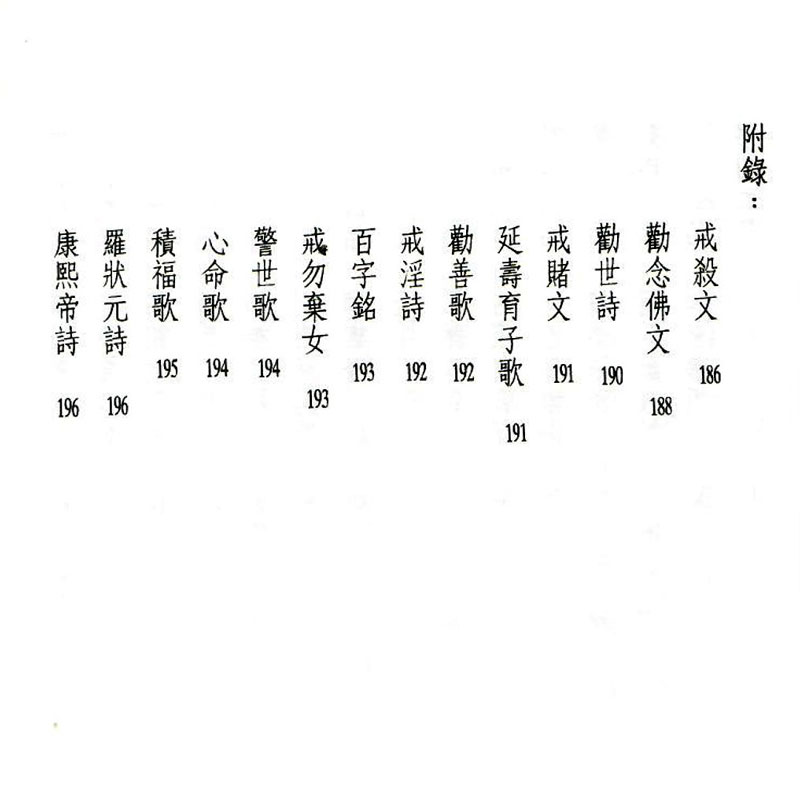 附錄：
戒殺文 186
勸念佛文 188
勸世詩 190
戒賭文 191
延壽育子歌 191
勸善歌 192
戒淫詩 192
百字銘 193
戒勿棄女 193
警世歌 194
心命歌 194
積福歌 195
羅狀元詩 196
康熙帝詩 196